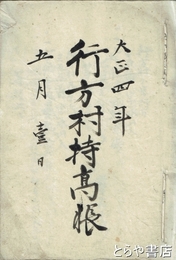 大正四年
行方村持高帳
五月壹日
とらや書店